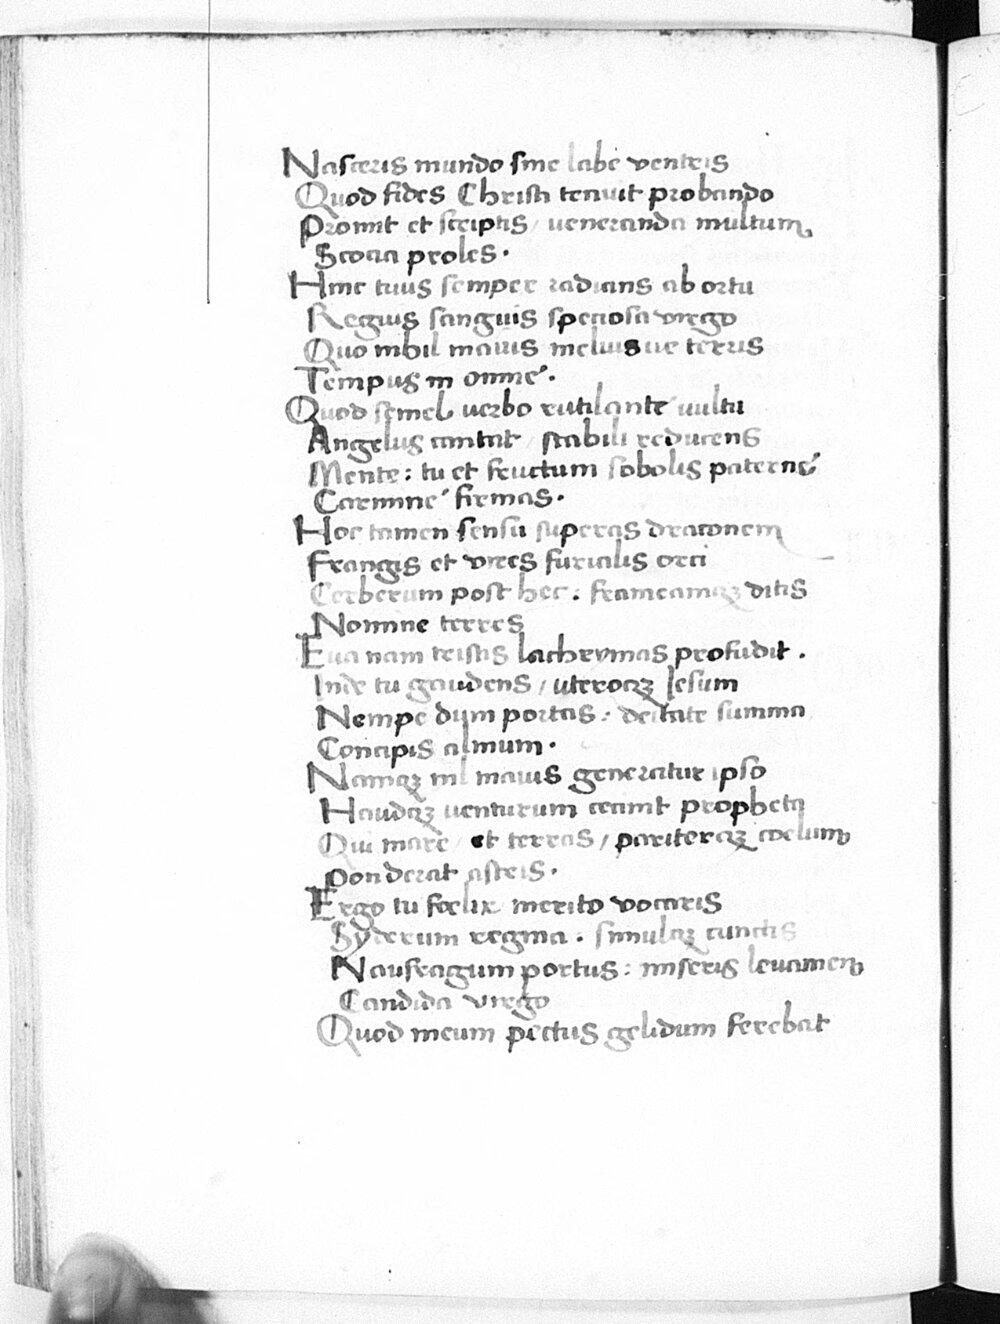 Nasceris mundo sine labe ventris
Quod fides Christi tenuit probando
Promit et scriptis / veneranda multum
Scotia proles.
Hinc tuus semper radians ab ortu
Regius sanguis speciosa virgo
Quo nihil maius meliusue terris
Tempus in omne.
Quod semel verbo rutilante vultu
Angelus cantat / stabili reducens
Mente: tu et fructum sobolis paterne
Carmine firmas.
Hoc tamen sensu superas draconem
Frangis et vires furialis orci
Cerberum post hec: frameamqȝ ditis
Nomine terres
Eua nam tristis lachrymas profudit.
Inde tu gaudens / uteroqȝ Iesum
Nempe dum portas: deitate summa
Concipis almum.
Namqȝ nil maius generatur ipso
Haudqȝ venturum cecinit propheta
Qui mare / et terras / pariterqȝ coelum
Ponderat astris.
Ergo tu foelix merito vocaris
Syderum regina. simulqȝ cunctis
Naufragum portus: miseris leuamen
Candida virgo
Quod meum pectus gelidum ferebat